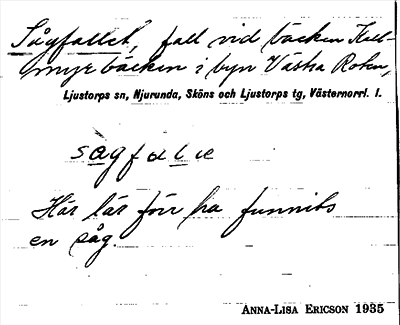 Sågfallet, fall vid bäcken Käll-
myrbäcken i byn Västra Roten,
Ljustorps sn, Njurunda, Sköns och Ljustorps tg, Västernorrl. l.
sagfalle
Här lär förr ha funnits
en såg.
ANNA-LISA ERICSON 1935